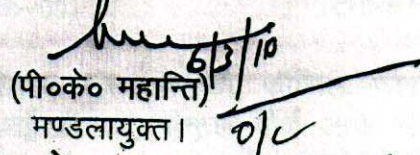 6/3/10
(पी०के० महान्ति)
मण्डलायुक्त।
o/c